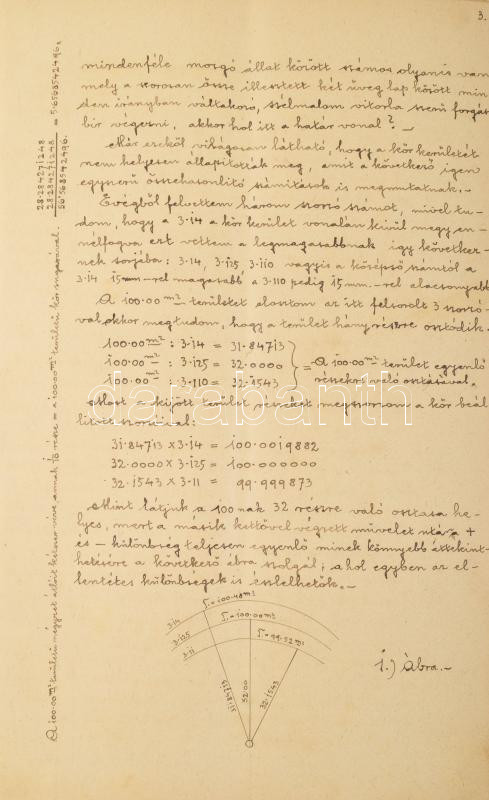 3.
mindenféle mozgó állat között számos olyan is van
mely a szorosan össze illesztett két üveg lap között min
den irányban váltakozó, szélmalom vitorla szerű forgást
bir végezni, akkor hol itt a határ vonal? –
Már ezekből világosan látható, hogy a kör kerületét
nem helyesen állapították meg, amit a következő igen
egyszerű összehasonlitó számitások is megmutatnak. –
Evégből felvettem három szorzó számot, mivel tu-
dom, hogy a 3·14 a kör kerület vonalán kívül megy en-
nélfogva ezt vettem a legmagasabbnak igy következ-
nek sorjába: 3·14, 3·125 3·110 vagyis a középső számtól a
3·14 15mm-rel magasabb a 3·110 pedig 15mm.-rel alacsonyabb
A 100·00 m² területet elosztom az itt felsorolt 3 szorzó-
val, akkor megtudom, hogy a terület hány részre osztódik.
100·00 m² : 3·14 = 31·84713
100·00 m² : 3·125 = 32·0000
100·00 m² : 3·110 = 32·1543
= A 100·00 m² terület egyenlő
részekre való osztásával.
Most a kijött terület részeket megszorzom a kör beál
litott szorzóival:
31·84713 x 3·14 = 100·0019882
32·0000 x 3·125 = 100·000000
32·1543 x 3·11 = 99·999873
Mint látjuk a 100 nak 32 részre való osztása he-
lyes, mert a másik kettővel végzett művelet után a +
és – különbség teljesen egyenlő minek könnyebb áttekint-
hetésére a következő ábra szolgál; ahol egyben az el-
lentétes különbségek is észlelhetők. –
3·14
3·125
3·11
T = 100·48 m²
T = 100·00 m²
T = 99·52 m²
31·84713
32·00
32·1543
1.) Ábra. –
28·284271248
28·284271248
56·568542496.
= 5·6568542496.
databanth